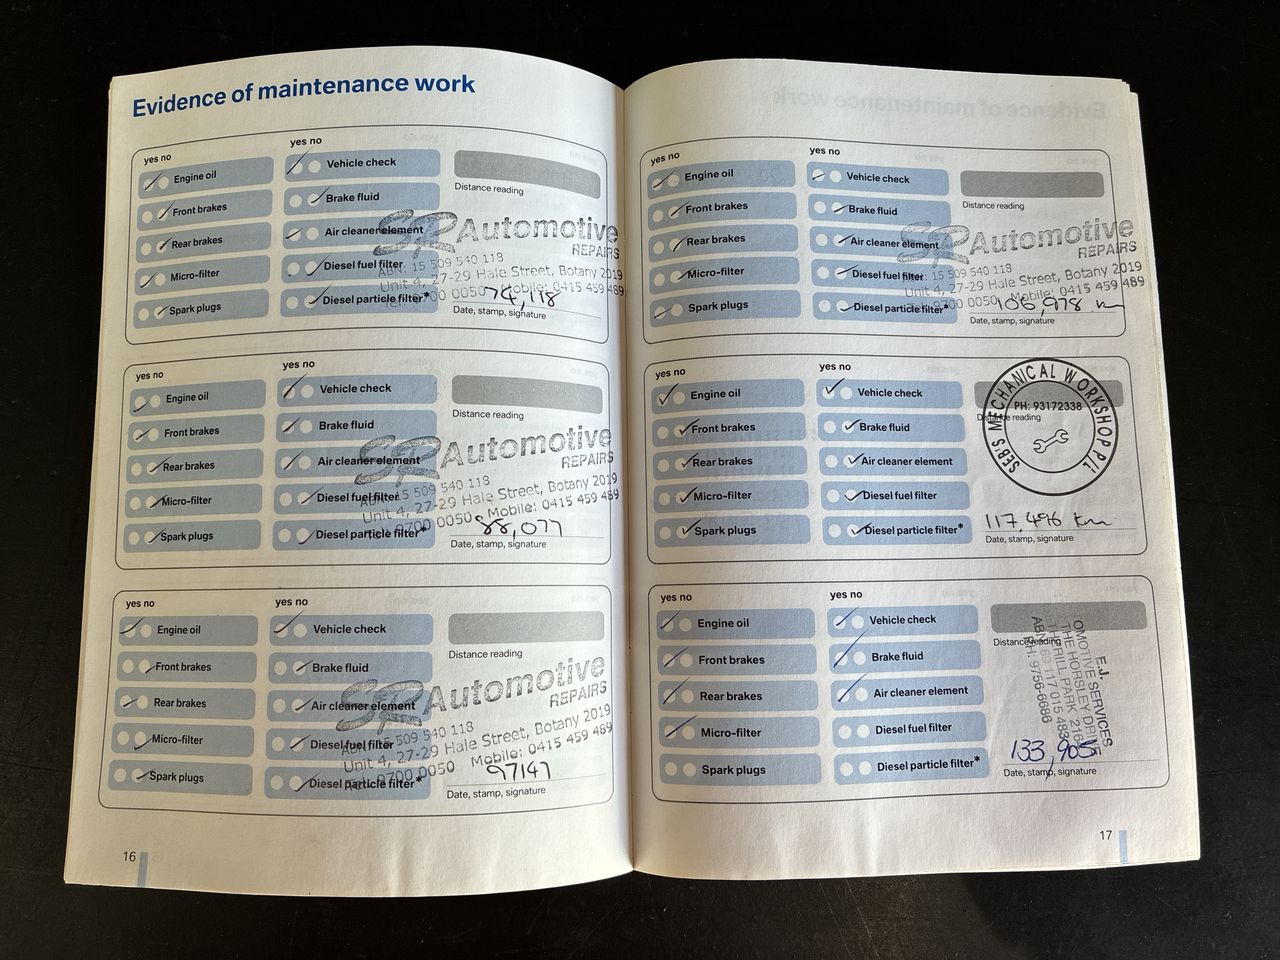 Evidence of maintenance work
yes no
yes no
Engine oil
Vehicle check
Front brakes
Brake fluid
Rear brakes
Air cleaner element
Micro-filter
Diesel fuel filter
Spark plugs
Diesel particle filter*
Distance reading
SR Automotive
REPAIRS
ABN: 15 509 540 118
Unit 4, 27-29 Hale Street, Botany 2019
Tel: 9700 0050 Mobile: 0415 459 489
74,118
Date, stamp, signature
yes no
yes no
Engine oil
Vehicle check
Front brakes
Brake fluid
Rear brakes
Air cleaner element
Micro-filter
Diesel fuel filter
Spark plugs
Diesel particle filter*
Distance reading
SR Automotive
REPAIRS
ABN: 15 509 540 118
Unit 4, 27-29 Hale Street, Botany 2019
Tel: 9700 0050 Mobile: 0415 459 489
88,077
Date, stamp, signature
yes no
yes no
Engine oil
Vehicle check
Front brakes
Brake fluid
Rear brakes
Air cleaner element
Micro-filter
Diesel fuel filter
Spark plugs
Diesel particle filter*
Distance reading
SR Automotive
REPAIRS
ABN: 15 509 540 118
Unit 4, 27-29 Hale Street, Botany 2019
Tel: 9700 0050 Mobile: 0415 459 489
97147
Date, stamp, signature
16
yes no
yes no
Engine oil
Vehicle check
Front brakes
Brake fluid
Rear brakes
Air cleaner element
Micro-filter
Diesel fuel filter
Spark plugs
Diesel particle filter*
Distance reading
SR Automotive
REPAIRS
15 509 540 118
Unit 4, 27-29 Hale Street, Botany 2019
Tel: 9700 0050 Mobile: 0415 459 489
106,978 km
Date, stamp, signature
yes no
yes no
Engine oil
Vehicle check
Front brakes
Brake fluid
Rear brakes
Air cleaner element
Micro-filter
Diesel fuel filter
Spark plugs
Diesel particle filter*
Distance reading
SEBS MECHANICAL WORKSHOP P/L
PH: 93172338
117,496 km
Date, stamp, signature
yes no
yes no
Engine oil
Vehicle check
Front brakes
Brake fluid
Rear brakes
Air cleaner element
Micro-filter
Diesel fuel filter
Spark plugs
Diesel particle filter*
Distance reading
E.J.
OMOTIVE SERVICES
THE HORSLEY DRIVE
THERILL PARK 216
ABN 69 117 015 483
PH: 9756-6686
133,905
Date, stamp, signature
17